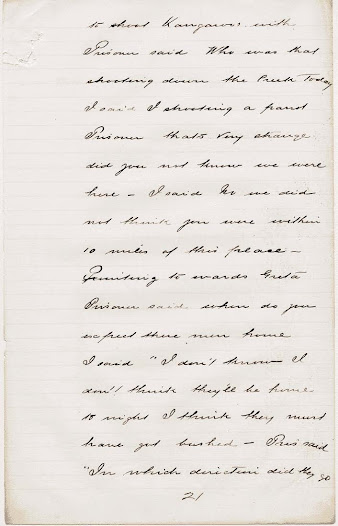 to shoot Kangaroos with
Prisoner said Who was that
shooting down the Creek Today
I said I shooting a parrot
Prisoner thats very strange
did you not know we were
here - I said No we did
not think you were within
10 miles of this place -
Pointing to wards Greta
Prisoner said when do you
expect these men home
I said "I don't know I
don't think they'll be home
to night I think they must
have got bushed - Pris said
"In which direction did they go
21